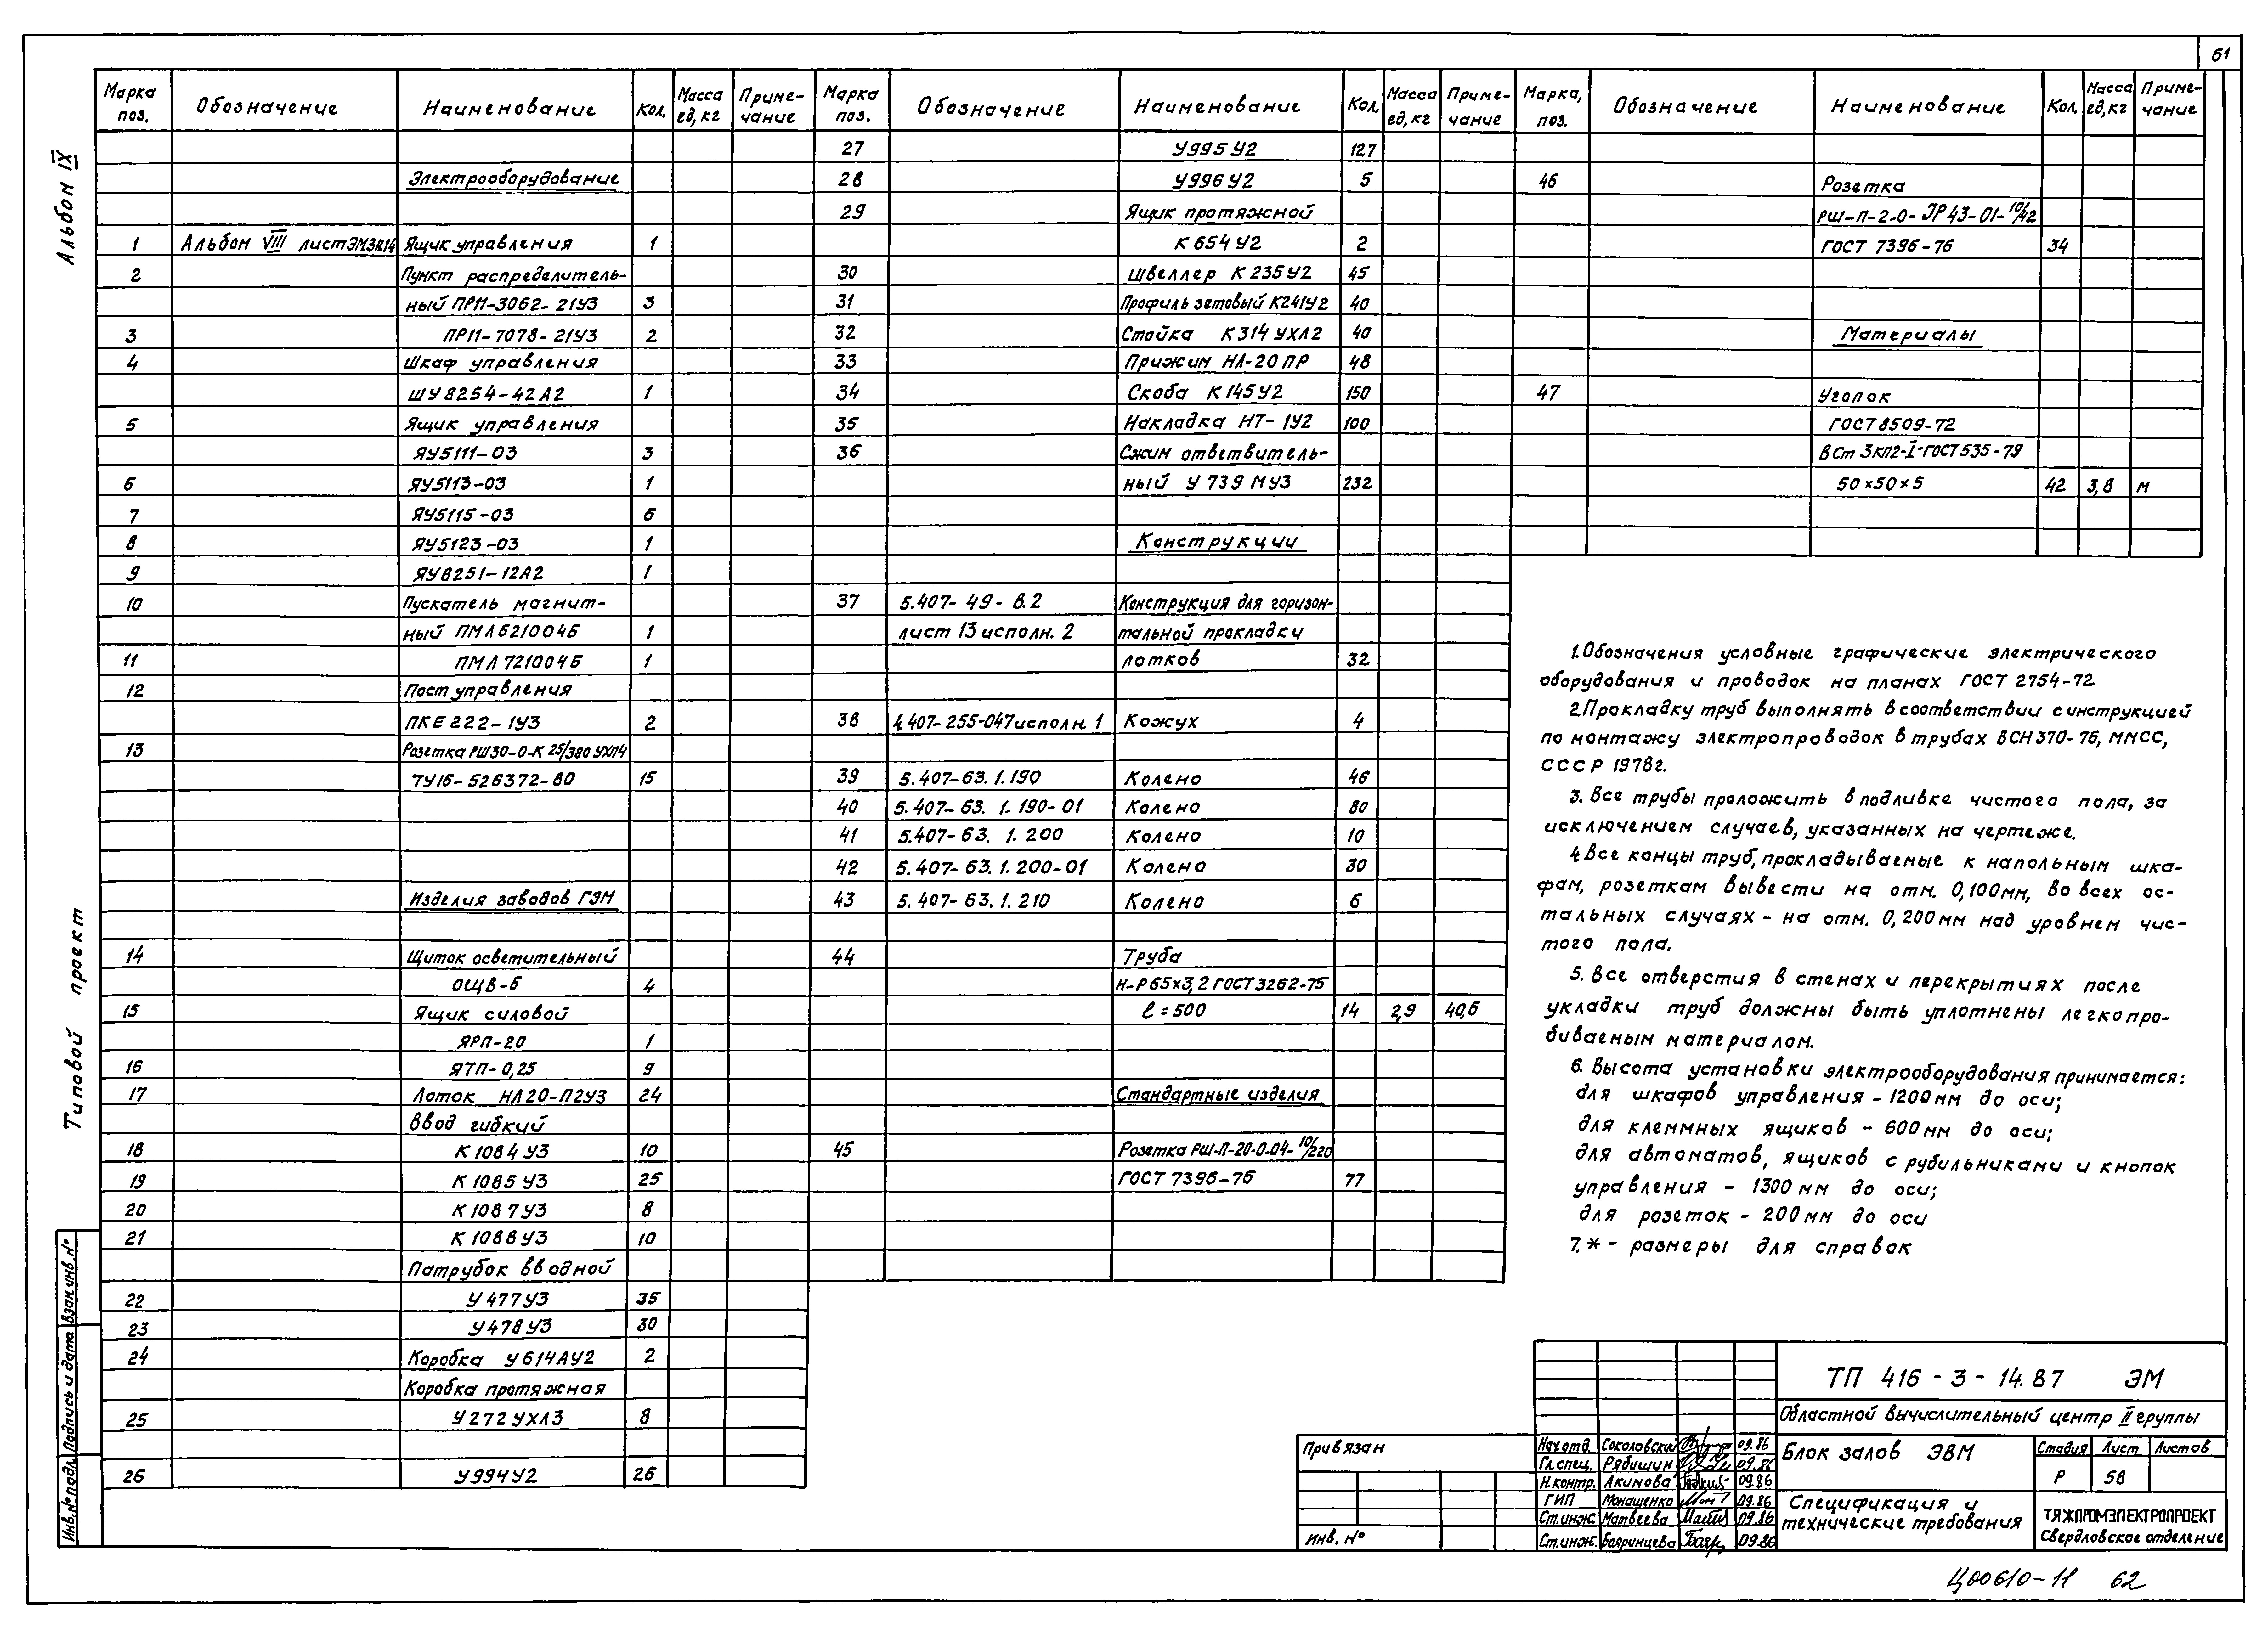 61
Альбом IX
Типовой проект
Марка поз. Обозначение Наименование Кол. Масса ед, кг Приме-чание
Электрооборудование
1 Альбом VIII лист ЭМ.ЗИ14 Ящик управления 1
2 Пункт распределитель-
ный ПР11-3062-21У3 3
3 ПР11-7078-21У3 2
4 Шкаф управления
ШУ8254-42А2 1
5 Ящик управления
ЯУ5111-03 3
6 ЯУ5113-03 1
7 ЯУ5115-03 6
8 ЯУ5123-03 1
9 ЯУ8251-12А2 1
10 Пускатель магнит-
ный ПМЛ621004Б 1
11 ПМЛ721004Б 1
12 Пост управления
ПКЕ 222-1У3 2
13 Розетка РШ30-0-К 25/380 УХЛ4
ТУ16-526372-80 15
Изделия заводов ГЭМ
14 Щиток осветительный
ОЩВ-6 4
15 Ящик силовой
ЯРП-20 1
16 ЯТП-0,25 9
17 Лоток НЛ20-П2У3 24
Ввод гибкий
18 К 1084 У3 10
19 К 1085 У3 25
20 К 1087У3 8
21 К 1088У3 10
Патрубок вводной
22 У 477У3 35
23 У478У3 30
24 Коробка У614АУ2 2
Коробка протяжная
25 У272УХЛ3 8
26 У994У2 26
Марка поз. Обозначение Наименование Кол. Масса ед, кг Приме-чание
27 У995У2 127
28 У996У2 5
29 Ящик протяжной
К 654У2 2
30 Швеллер К 235У2 45
31 Профиль зетовый К241У2 40
32 Стойка К314 УХЛ2 40
33 Прижим НЛ-20ПР 48
34 Скоба К 145У2 150
35 Накладка НТ-1У2 100
36 Сжим ответвитель-
ный У 739 МУ3 232
Конструкции
37 5.407-49-В.2 Конструкция для горизон-
лист 13 исполн. 2 тальной прокладки
лотков 32
38 4.407-255-047 исполн. 1 Кожух 4
39 5.407-63.1.190 Колено 46
40 5.407-63.1.190-01 Колено 80
41 5.407-63.1.200 Колено 10
42 5.407-63.1.200-01 Колено 30
43 5.407-63.1.210 Колено 6
44 Труба
Н-Р 65×3,2 ГОСТ 3262-75
ℓ=500 14 2,9 40,6
Стандартные изделия
45 Розетка РШ-П-20-0-04-10/220
ГОСТ 7396-76 77
Марка, поз. Обозначение Наименование Кол. Масса ед, кг Приме-чание
46 Розетка
РШ-П-2-0-JР43-01-10/42
ГОСТ 7396-76 34
Материалы
47 Уголок
ГОСТ 8509-72
ВСт 3КП2-I-ГОСТ535-79
50×50×5 42 3,8 м
1. Обозначения условные графические электрического
оборудования и проводок на планах ГОСТ 2754-72
2. Прокладку труб выполнять в соответствии с инструкцией
по монтажу электропроводок в трубах ВСН 370-76, ММСС,
СССР 1978г.
3. Все трубы проложить в подливке чистого пола, за
исключением случаев, указанных на чертеже.
4. Все концы труб, прокладываемые к напольным шка-
фам, розеткам вывести на отм. 0,100мм, во всех ос-
тальных случаях - на отм. 0,200мм над уровнем чис-
того пола.
5. Все отверстия в стенах и перекрытиях после
укладки труб должны быть уплотнены легкопро-
биваемым материалом.
6. Высота установки электрооборудования принимается:
для шкафов управления - 1200мм до оси;
для клеммных ящиков - 600мм до оси;
для автоматов, ящиков с рубильниками и кнопок
управления - 1300мм до оси;
для розеток - 200мм до оси
7. * - размеры для справок
Инв. № подл. Подпись и дата Взам. инв. №
Привязан
Инв. №
ТП 416-3-14.87 ЭМ
Областной вычислительный центр II группы
Нач отд. Соколовский 09.86
Гл. спец. Рябишин 09.86
Н. контр. Акимова 09.86
ГИП Монащенко 09.86
Ст. инж. Матвеева 09.86
Ст. инж. Бояринцева 09.86
Блок залов ЭВМ
Стадия Лист Листов
Р 58
Спецификация и
технические требования
ТЯЖПРОМЭЛЕКТРОПРОЕКТ
Свердловское отделение
Ц00610-11 62